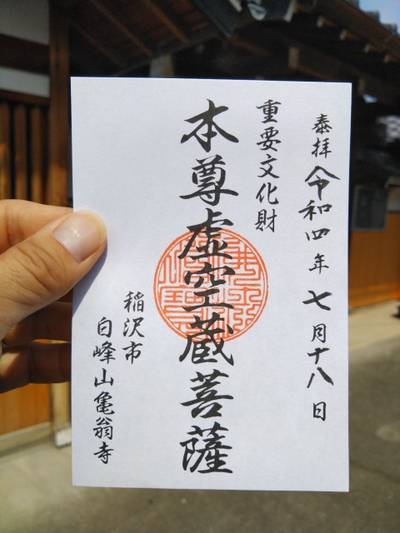 奉拝 令和四年 七月十八日
重要文化財
本尊虚空蔵菩薩
稲沢市
白峰山亀翁寺